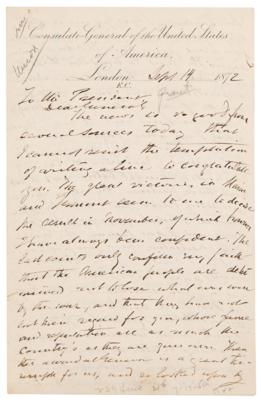 Consulate-General of the United States
of America.
London Sept 14, 1872
E.C.
To the President
Dear General
The news is so good from
several sources today that
I cannot resist the temptation
of writing a line to congratulate
you. The great victories in Maine
and Vermont seem to me to decide
the result in November, of which however
I have always been confident. The
last events only confirm my faith
that the American people are determined
not to lose what was won
by the war, and that they have not
lost their regard for you, whose fame
and reputation are as much the
country's as they are your own. Then
the is a great triumph
for us, and so looked upon by